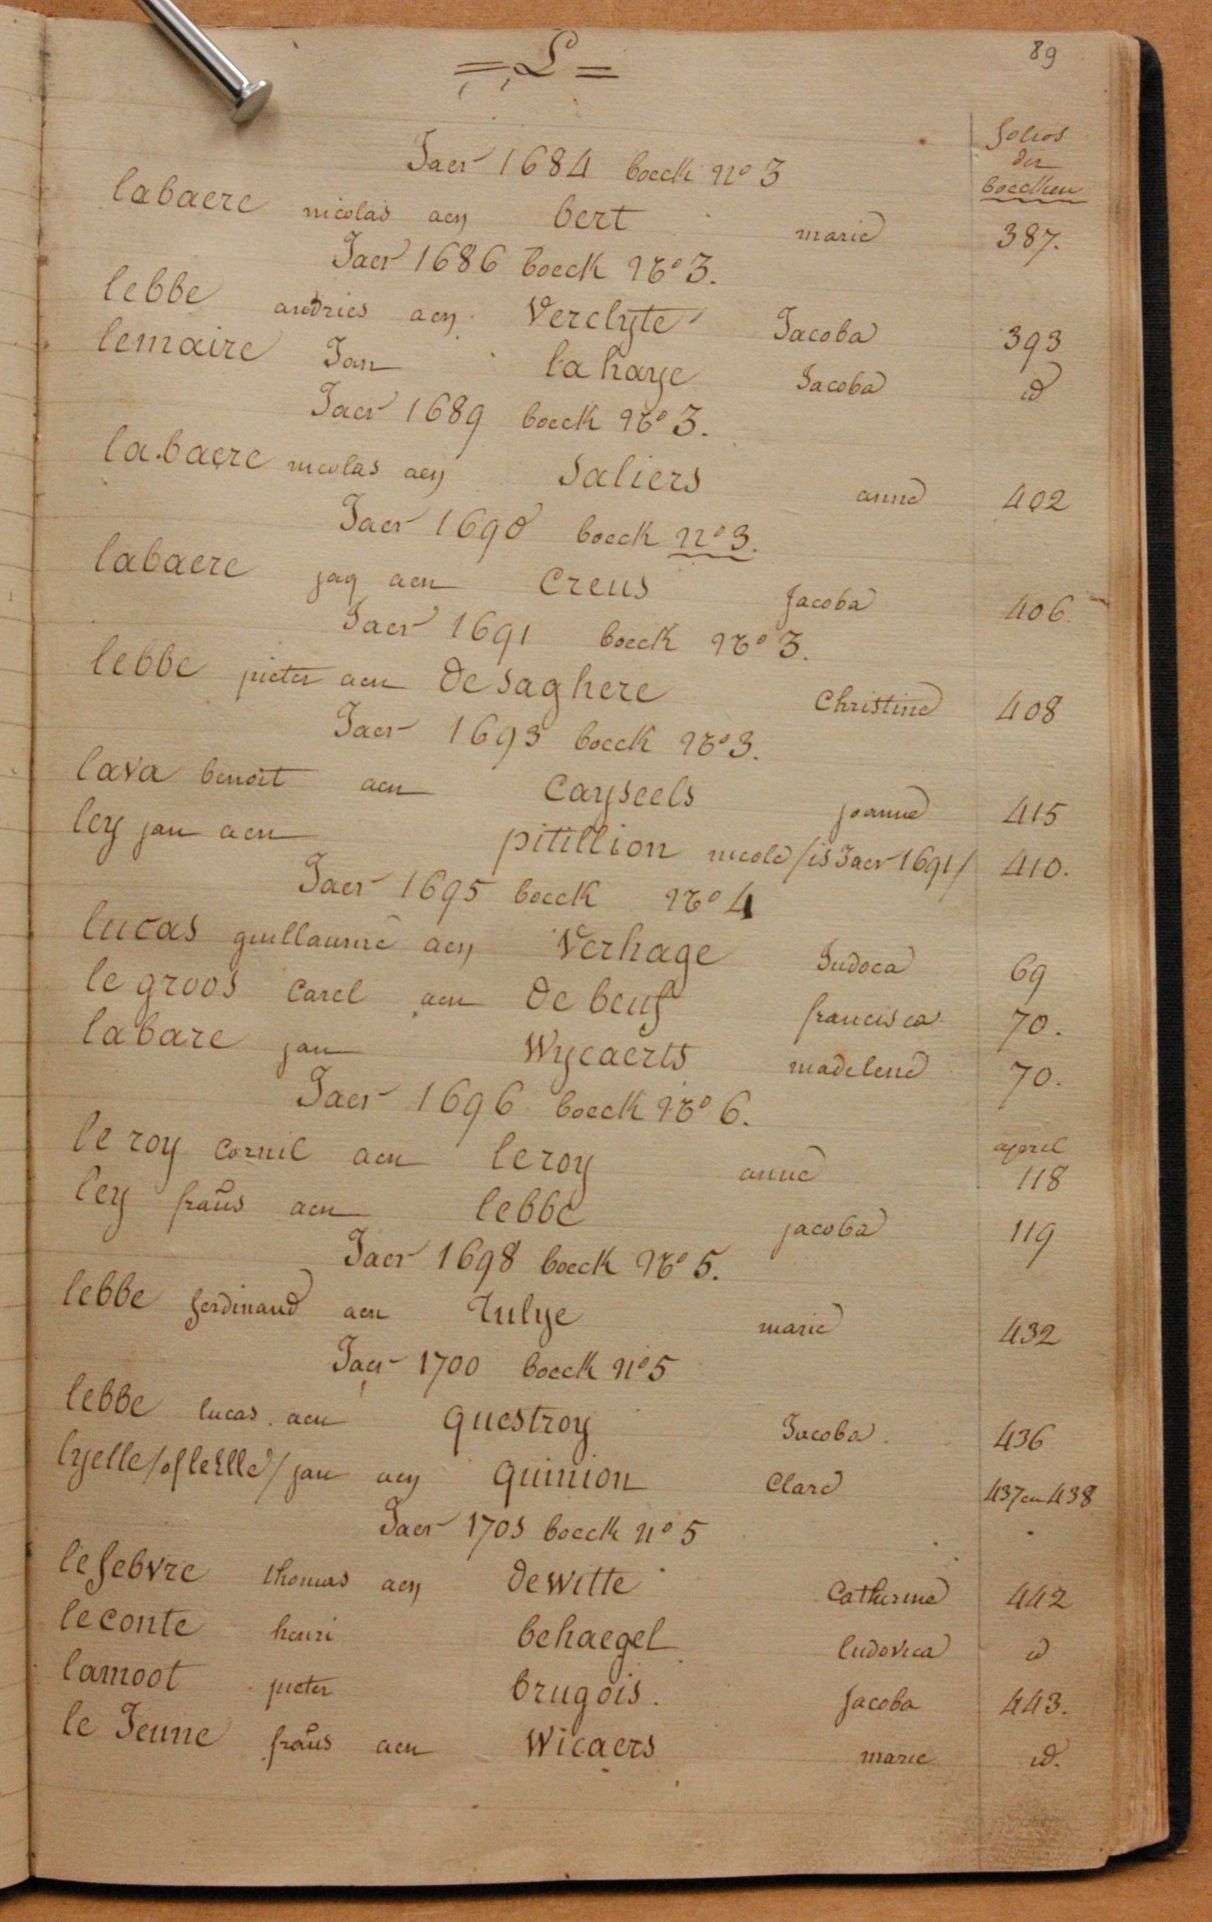 89
= L =
folios
der
boecken
Jaer 1684 boeck no 3
labaere nicolas aen bert marie 387.
Jaer 1686 boeck No 3.
lebbe andries aen Verclyte Jacoba 393
lemaire Jan lahaye Jacoba id
Jaer 1689 boeck No 3.
labaere nicolas aen Saliers anne 402
Jaer 1690 boeck no 3.
labaere jaq aen Creus Jacoba 406.
Jaer 1691 boeck No 3.
lebbe pieter aen desaghere Christine 408
Jaer 1693 boeck No 3.
lava benoit aen Cayseels joanne 415
ley jan aen pitillion nicole /is Jaer 1691/ 410.
Jaer 1695 boeck No 4
lucas guillaume aen Verhage Judoca 69
le groos Carel aen de beuf francisca 70.
labare jan Wycaerts madelene 70.
Jaer 1696 boeck No 6.
april
le roy Cornil aen leroy anne 118
ley frans aen lebbe jacoba 119
Jaer 1698 boeck No 5.
lebbe ferdinand aen Tulye marie 432
Jaer 1700 boeck no 5
lebbe lucas aen questroy Jacoba 436
lyelle /of leElle/ jan aen quinion Clare 437 en 438
Jaer 1703 boeck no 5
lefebvre thomas aen dewitte Catherine 442
leconte henri behaegel ludovica id
lamoot pieter brugois. Jacoba 443.
le Jeune frans aen Wicaers marie id.